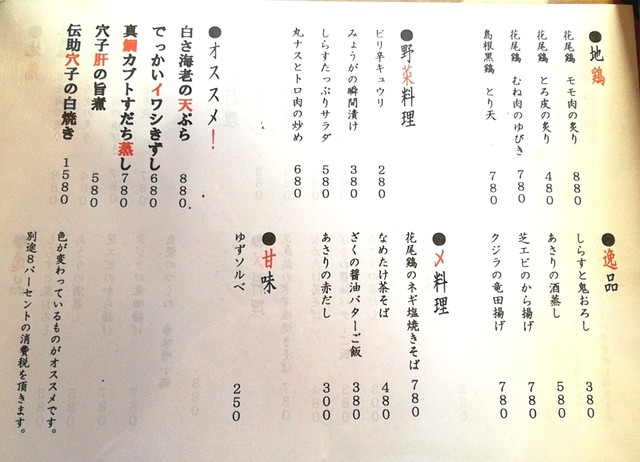 ●地鶏
花尾鶏 モモ肉の炙り 880
花尾鶏 とろ皮の炙り 480
花尾鶏 むね肉のゆびき 780
島根黒鶏 とり天 780
●野菜料理
ピリ辛キュウリ 280
みょうがの瞬間漬け 380
しらすたっぷりサラダ 580
丸ナスとトロ肉の炒め 680
●オススメ!
白さ海老の天ぷら 880
でっかいイワシきずし 680
真鯛カブトすだち蒸し 780
穴子肝の旨煮 580
伝助穴子の白焼き 1580
●逸品
しらすと鬼おろし 380
あさりの酒蒸し 580
芝エビのから揚げ 780
クジラの竜田揚げ 780
●〆料理
花尾鶏のネギ塩焼きそば 780
なめたけ茶そば 480
ざくの醤油バターご飯 380
あさりの赤だし 300
●甘味
ゆずソルベ 250
色が変わっているものがオススメです。
別途8パーセントの消費税を頂きます。